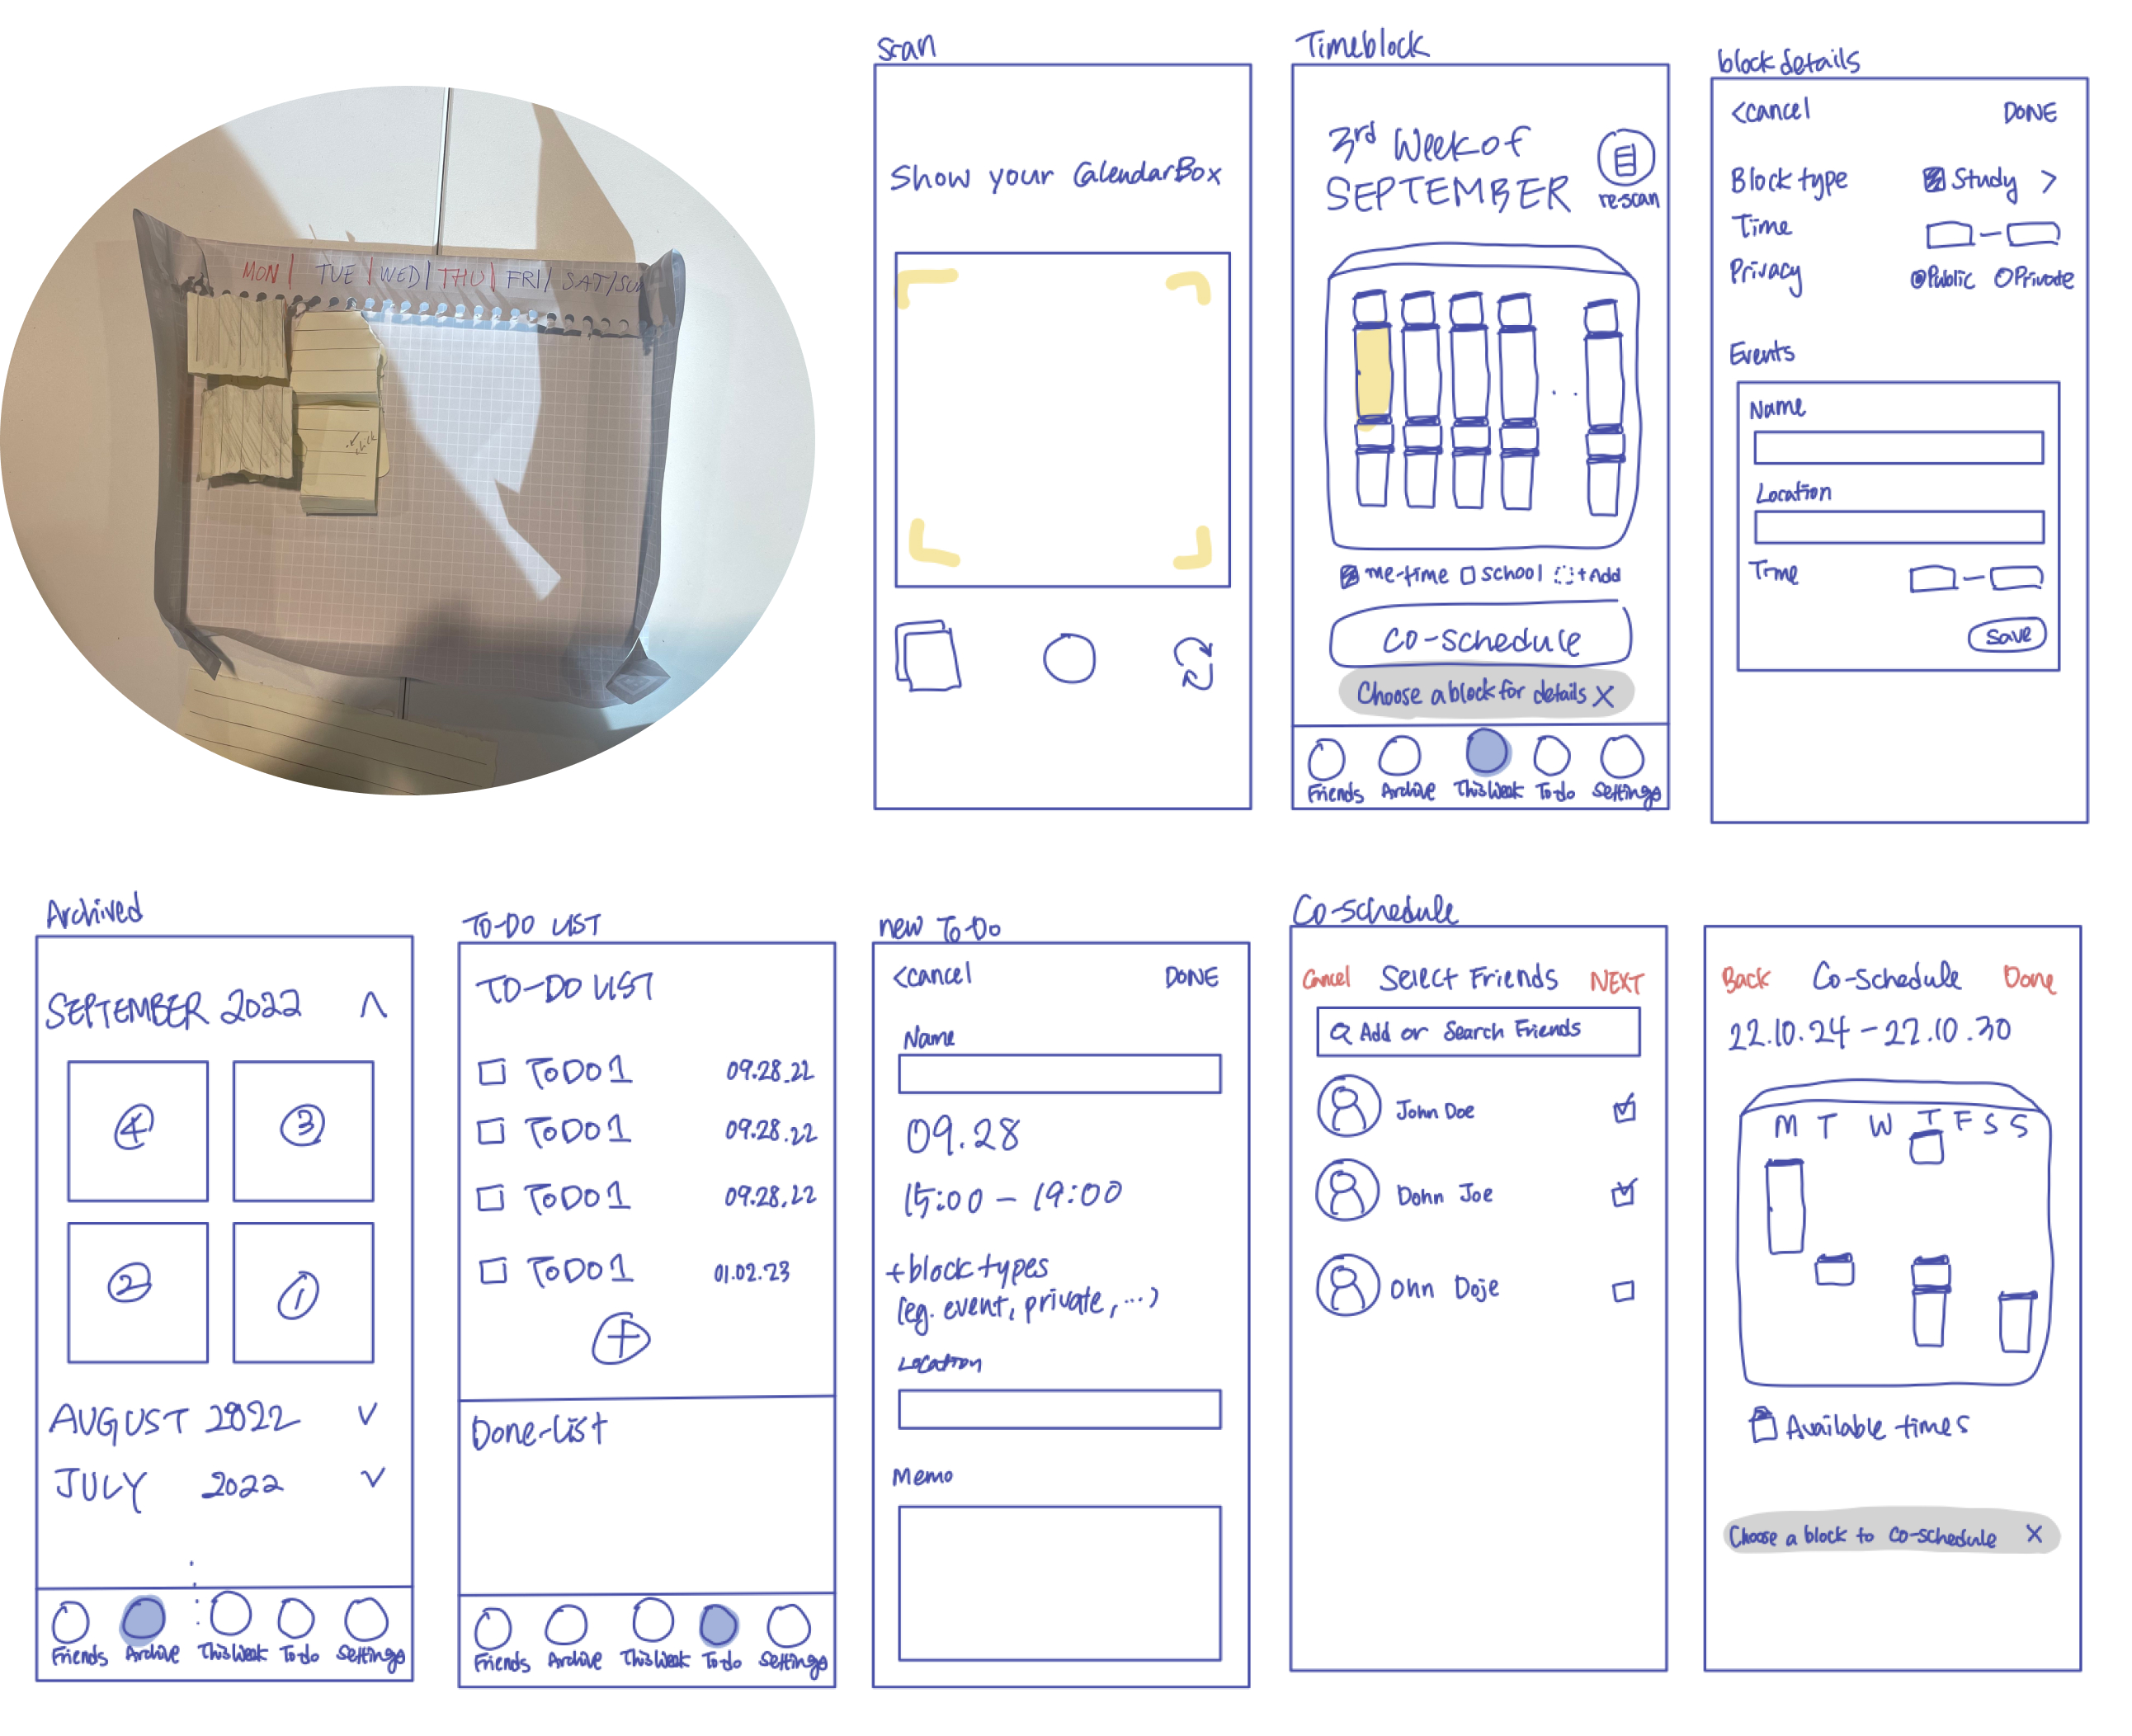 MON | TUE | WED | THU | FRI / SAT/SUN
scan
Show your CalendarBox
Timeblock
3rd Week of
SEPTEMBER
re-scan
me-time school + Add
CO-schedule
Choose a block for details X
Friends Archive This Week To do Settings
block details
<cancel DONE
Block type Study >
Time —
Privacy Public Private
Events
Name
Location
Time —
Save
Archived
SEPTEMBER 2022 ∧
4 3
2 1
AUGUST 2022 ∨
JULY 2022 ∨
Friends Archive This Week To do Settings
TO-DO LIST
TO-DO LIST
TODO 1 09.28.22
TODO 1 09.28.22
TODO 1 09.28.22
TODO 1 01.02.23
+
Done-list
Friends Archive This Week To do Settings
new To-Do
<cancel DONE
Name
09.28
15:00 – 19:00
+ block types
(eg. event, private, ...)
Location
Memo
Co-schedule
Cancel Select Friends NEXT
Add or Search Friends
John Doe
Dohn Joe
Ohn Doje
Back Co-schedule Done
22.10.24 – 22.10.30
M T W T F S S
Available times
Choose a block to co-schedule X